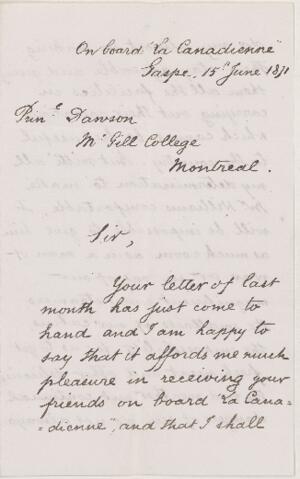 On board "La Canadienne"
Gaspe, 15th June 1871
Prin.e Dawson
Mc Gill College
Montreal.
Sir,
Your letter of last
month has just come to
hand and I am happy to
say that it affords me much
pleasure in receiving your
friends on board "La Cana-
-dienne", and that I shall